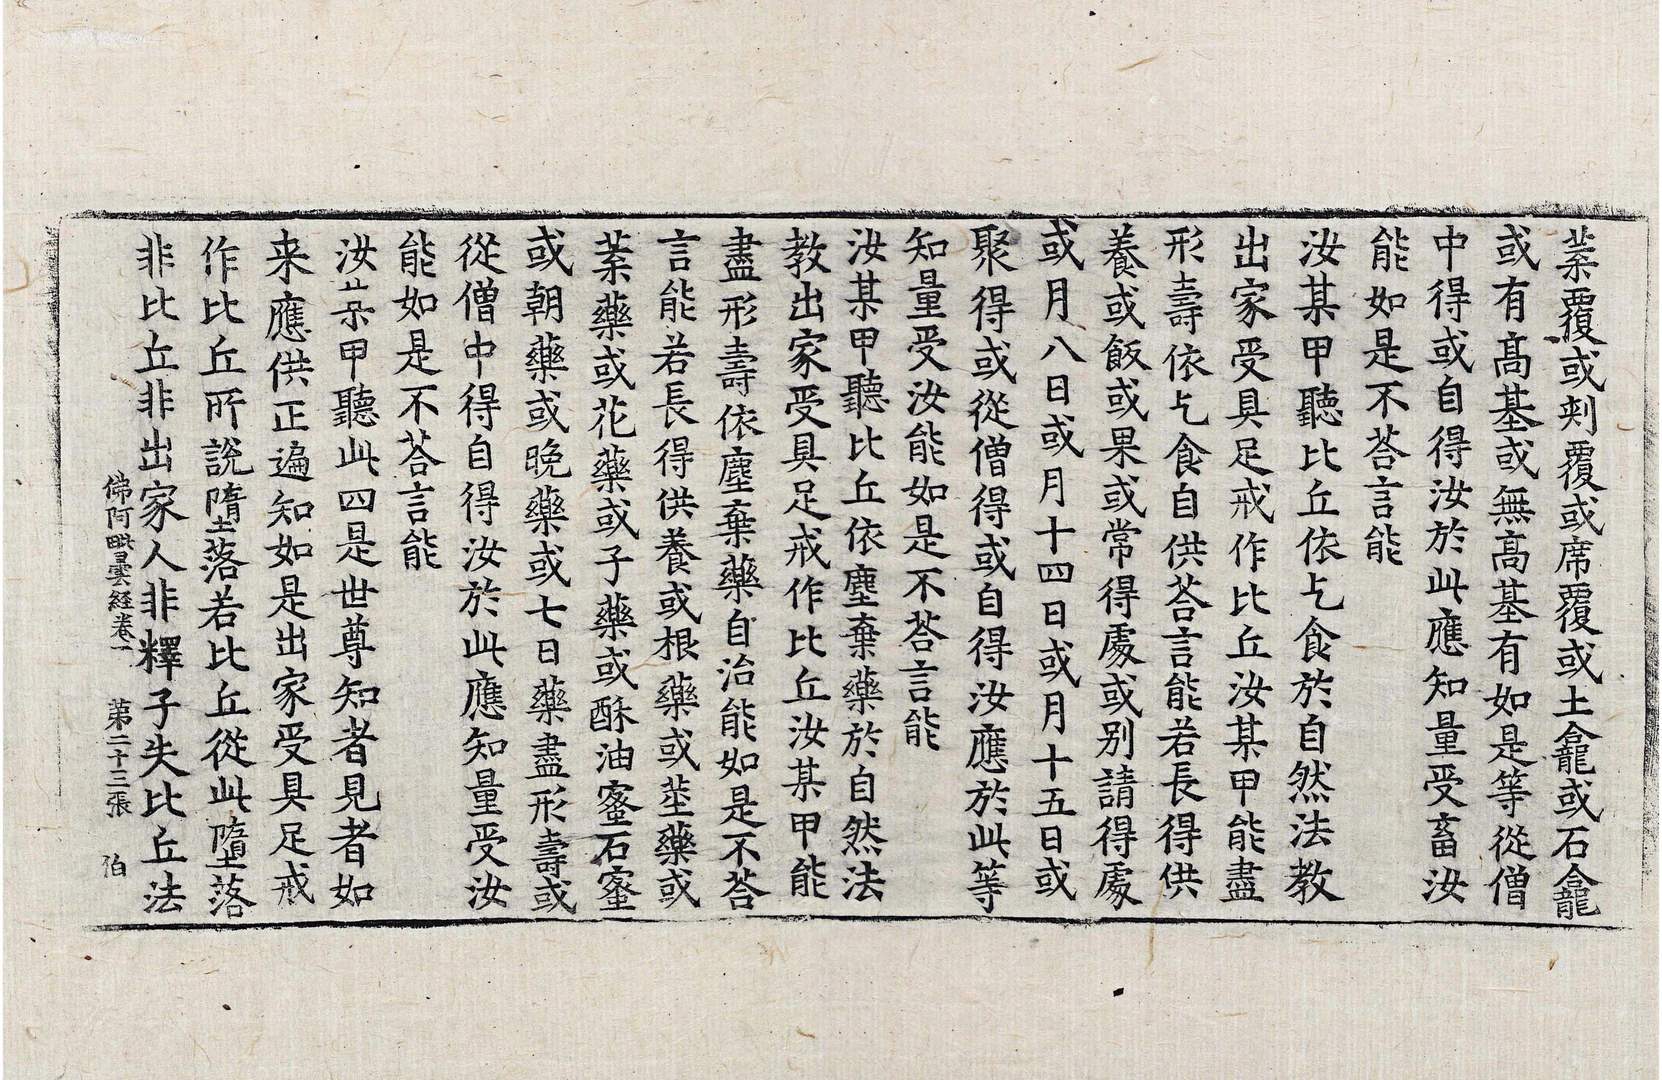 葉覆或刾覆或席覆或土龕或石龕
或有髙基或無髙基有如是等從僧
中得或自得汝於此應知量受畜汝
能如是不荅言能
汝某甲聽比丘依乞食於自然法教
出家受具足戒作比丘汝某甲能盡
形壽依乞食自供荅言能若長得供
養或飯或果或常得處或别請得處
或月八日或月十四日或月十五日或
聚得或從僧得或自得汝應於此等
知量受汝能如是不荅言能
汝某甲聽比丘依塵棄藥於自然法
教出家受具足戒作比丘汝某甲能
盡形壽依塵棄藥自治能如是不荅
言能若長得供養或根藥或莖藥或
葉藥或花藥或子藥或酥油蜜石蜜
或朝藥或晚藥或七日藥盡形壽或
從僧中得自得汝於此應知量受汝
能如是不荅言能
汝某甲聽此四是世尊知者見者如
来應供正遍知如是出家受具足戒
作比丘所説墮落若比丘從此墮落
非比丘非出家人非釋子失比丘法
佛阿毗曇経卷一 第二十三張 伯